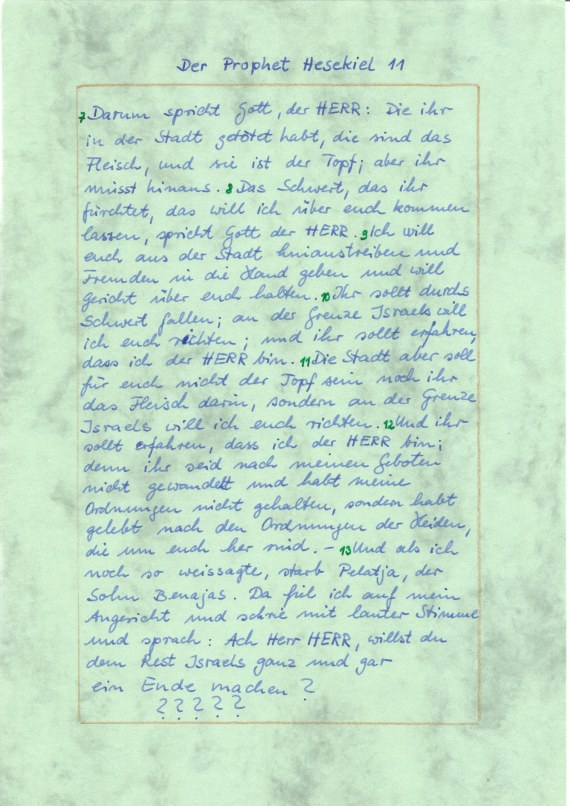 Der Prophet Hesekiel 11
7 Darum spricht Gott, der HERR: Die ihr
in der Stadt getötet habt, die sind das
Fleisch, und sie ist der Topf; aber ihr
müsst hinaus. 8 Das Schwert, das ihr
fürchtet, das will ich über euch kommen
lassen, spricht Gott der HERR. 9 Ich will
euch aus der Stadt hinaustreiben und
Fremden in die Hand geben und will
gericht über euch halten. 10 Ihr sollt durchs
Schwert fallen; an der Grenze Israels will
ich euch richten; und ihr sollt erfahren,
dass ich der HERR bin. 11 Die Stadt aber soll
für euch nicht der Topf sein noch ihr
das Fleisch darin, sondern an der Grenze
Israels will ich euch richten. 12 Und ihr
sollt erfahren, dass ich der HERR bin;
denn ihr seid nach meinen Geboten
nicht gewandelt und habt meine
Ordnungen nicht gehalten, sondern habt
gelebt nach den Ordnungen der Heiden,
die um euch her sind. – 13 Und als ich
noch so weissagte, starb Pelatja, der
Sohn Benajas. Da fiel ich auf mein
Angericht und schrie mit lauter Stimme
und sprach: Ach Herr HERR, willst du
dem Rest Israels ganz und gar
ein Ende machen ?
? ? ? ? ?